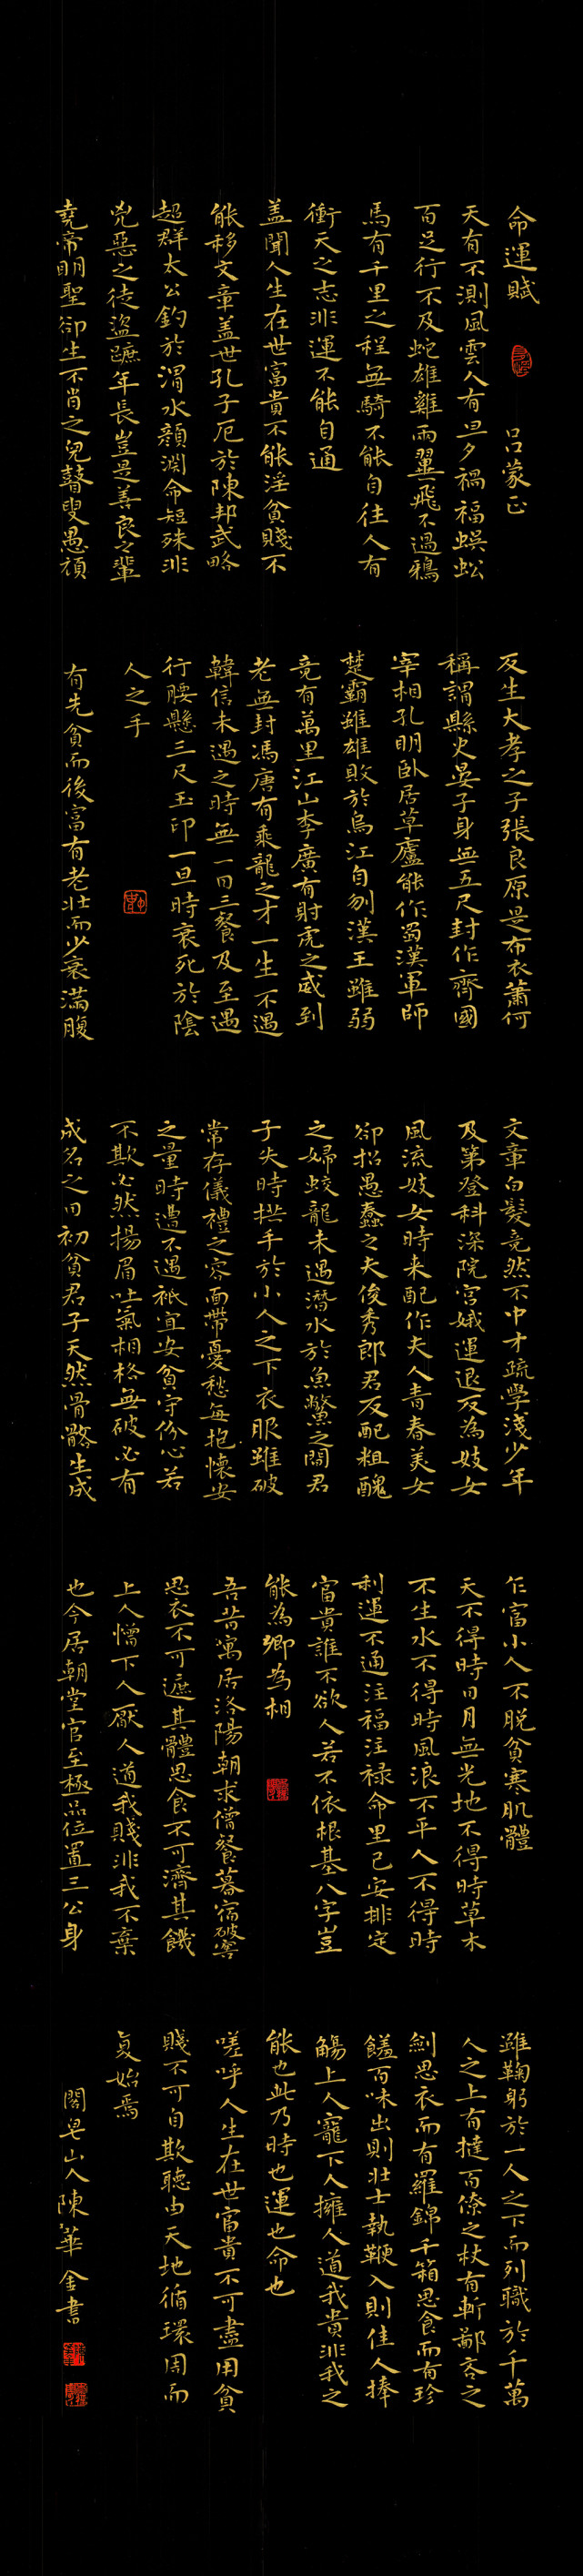 命運賦
呂蒙正
天有不測風雲人有旦夕禍福蜈蚣
百足行不及蛇雄雞兩翼飛不過鴉
馬有千里之程無騎不能自往人有
衝天之志非運不能自通
蓋聞人生在世富貴不能淫貧賤不
能移文章蓋世孔子厄於陳邦武略
超群太公釣於渭水顏淵命短殊非
兇惡之徒盜蹠年長豈是善良之輩
堯帝明聖卻生不肖之兒瞽叟愚頑
反生大孝之子張良原是布衣蕭何
稱謂縣吏晏子身無五尺封作齊國
宰相孔明臥居草廬能作蜀漢軍師
楚霸雖雄敗於烏江自刎漢王雖弱
竟有萬里江山李廣有射虎之威到
老無封馮唐有乘龍之才一生不遇
韓信未遇之時無一日三餐及至遇
行腰懸三尺玉印一旦時衰死於陰
人之手
有先貧而後富有老壯而少衰滿腹
文章白髮竟然不中才疏學淺少年
及第登科深院宮娥運退反為妓女
風流妓女時来配作夫人青春美女
卻招愚蠢之夫俊秀郎君反配粗醜
之婦蛟龍未遇潛水於魚鱉之間君
子失時拱手於小人之下衣服雖破
常存儀禮之容面帶憂愁每抱懷安
之量時遭不遇衹宜安貧守份心若
不欺必然揚眉吐氣相格無破必有
成名之日初貧君子天然骨骼生成
乍富小人不脫貧寒肌體
天不得時日月無光地不得時草木
不生水不得時風浪不平人不得時
利運不通注福注禄命里已安排定
富貴誰不欲人若不依根基八字豈
能為卿為相
吾昔寓居洛陽朝求僧餐暮宿破窖
思衣不可遮其體思食不可濟其饑
上人憎下人厭人道我賤非我不棄
也今居朝堂官至極品位置三公身
雖鞠躬於一人之下而列職於千萬
人之上有撻百僚之杖有斬鄙吝之
劍思衣而有羅錦千箱思食而有珍
饈百味出則壯士執鞭入則佳人捧
觴上人寵下人擁人道我貴非我之
能也此乃時也運也命也
嗟呼人生在世富貴不可盡用貧
賤不可自欺聽由天地循環周而
复始焉
閣皂山人陳華金書